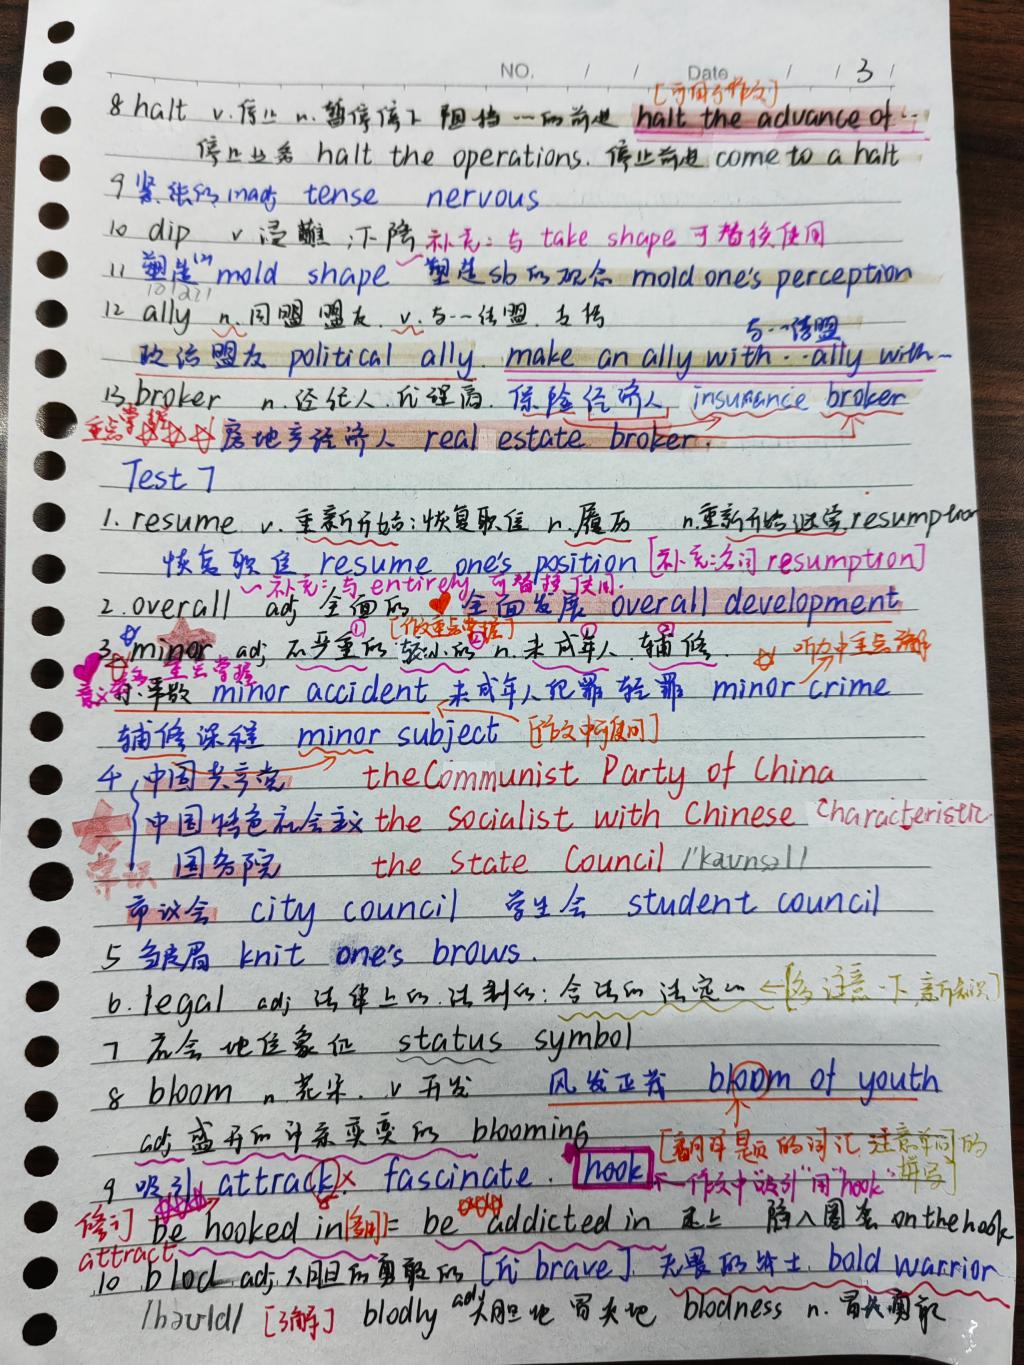 NO. / / Date / / 3 /
[可用于作文]
8 halt v.停止 n.暂停停下 阻挡…的前进 halt the advance of…
停止业务 halt the operations. 停止前进 come to a halt
9 紧张的 adj tense nervous
10 dip v 浸 蘸 ;下降 补充:与 take shape 可替换使用
11 塑造 mold shape 塑造sb的观念 mold one's perception
12 ally n.同盟 盟友 v.与…结盟.支持
与…结盟
政治盟友 political ally. make an ally with…ally with…
13.broker n.经纪人.代理商. 保险经济人 insurance broker
重点掌握 房地产经济人 real estate broker.
Test 7
1. resume v.重新开始;恢复职位 n.履历 n.重新开始继续resumption
恢复职位 resume one's position [补充:名词resumption]
补充:与entirely 可替换使用.
2.overall adj 全面的 全面发展 overall development
[作文重点掌握]
3 minor adj 不严重的.轻小的 n.未成年人.辅修. 听力中重点理解
重点掌握
事故 minor accident 未成年人犯罪 轻罪 minor crime
辅修课程 minor subject [作文中可使用]
4 中国共产党 the Communist Party of China
中国特色社会主义 the Socialist with Chinese Characteristic
国务院 the State Council /'kaʊnsəl/
市议会 city council 学生会 student council
5 皱眉 knit one's brows.
6. legal adj 法律上的.法制的;合法的 法定的 ←[多注意一下,新知识]
7 社会地位象征 status symbol
8 bloom n.花朵. v 开发 风发正茂 bloom of youth
adj 盛开的 blooming [翻译单题的词汇.注意单词的拼写]
9 吸引 attrack× fascinate. hook 下一作文中"吸引"用"hook"
修订 be hooked in[适用]= be addicted in 迷上 陷入圈套 on the hook
attract
10 blod adj.大胆的勇敢的 [代 brave]. 无畏的战士. bold warrior
/bəʊld/ [了解] blodly adj 大胆地 冒失地 blodness n.冒失勇敢